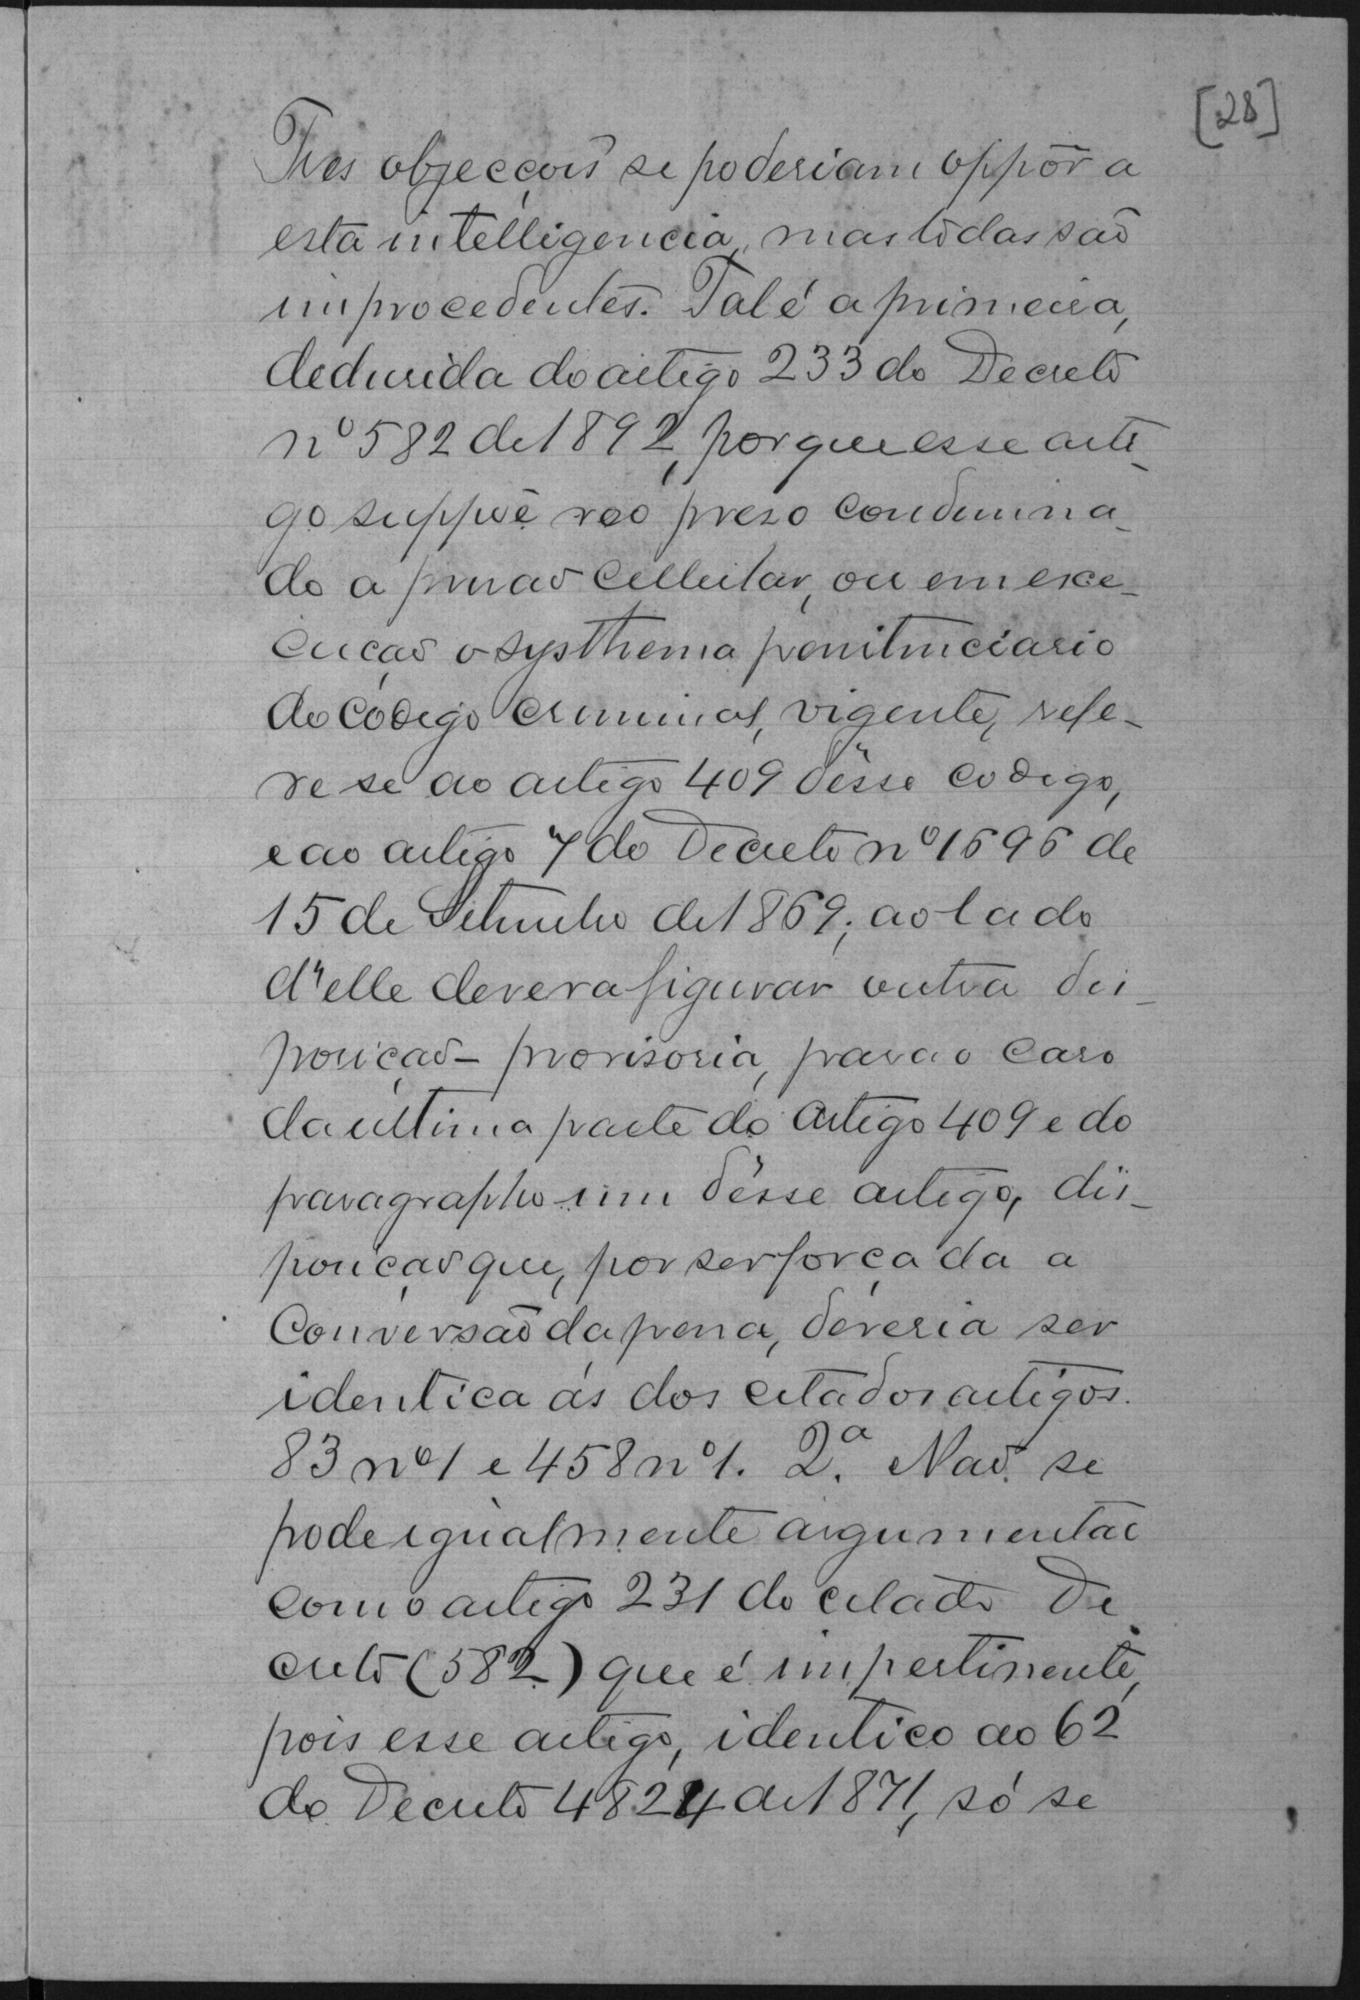 [28]
Tres objecções se poderiam oppôr a
esta intelligencia, mas todas são
improcedentes. Tal é a primeira,
deduzida do artigo 233 do Decreto
nº 582 de 1892, porque esse arti-
go suppõe réo preso condemna-
do a prisão cellular, ou em exe-
cução o systhema penitenciario
do código criminal, vigente, refe-
re se ao artigo 409 dêsse codigo,
e ao artigo 7 do Decreto nº 1696 de
15 de Setembro de 1869; ao lado
d'elle devera figurar outra dis-
posição - provisoria, para o caso
da ultima parte do artigo 409 e do
paragrapho um dêsse artigo, dis-
posição que, por ser forçada a
Conversão da pena, deveria ser
identica ás dos citados artigos.
83 nº 1 e 458 nº 1. 2.ª Não se
pode igualmente argumentar
com o artigo 231 do citado De
creto (582) que é impertinente,
pois esse artigo, identico ao 62
do Decreto 4824 de 1871, só se